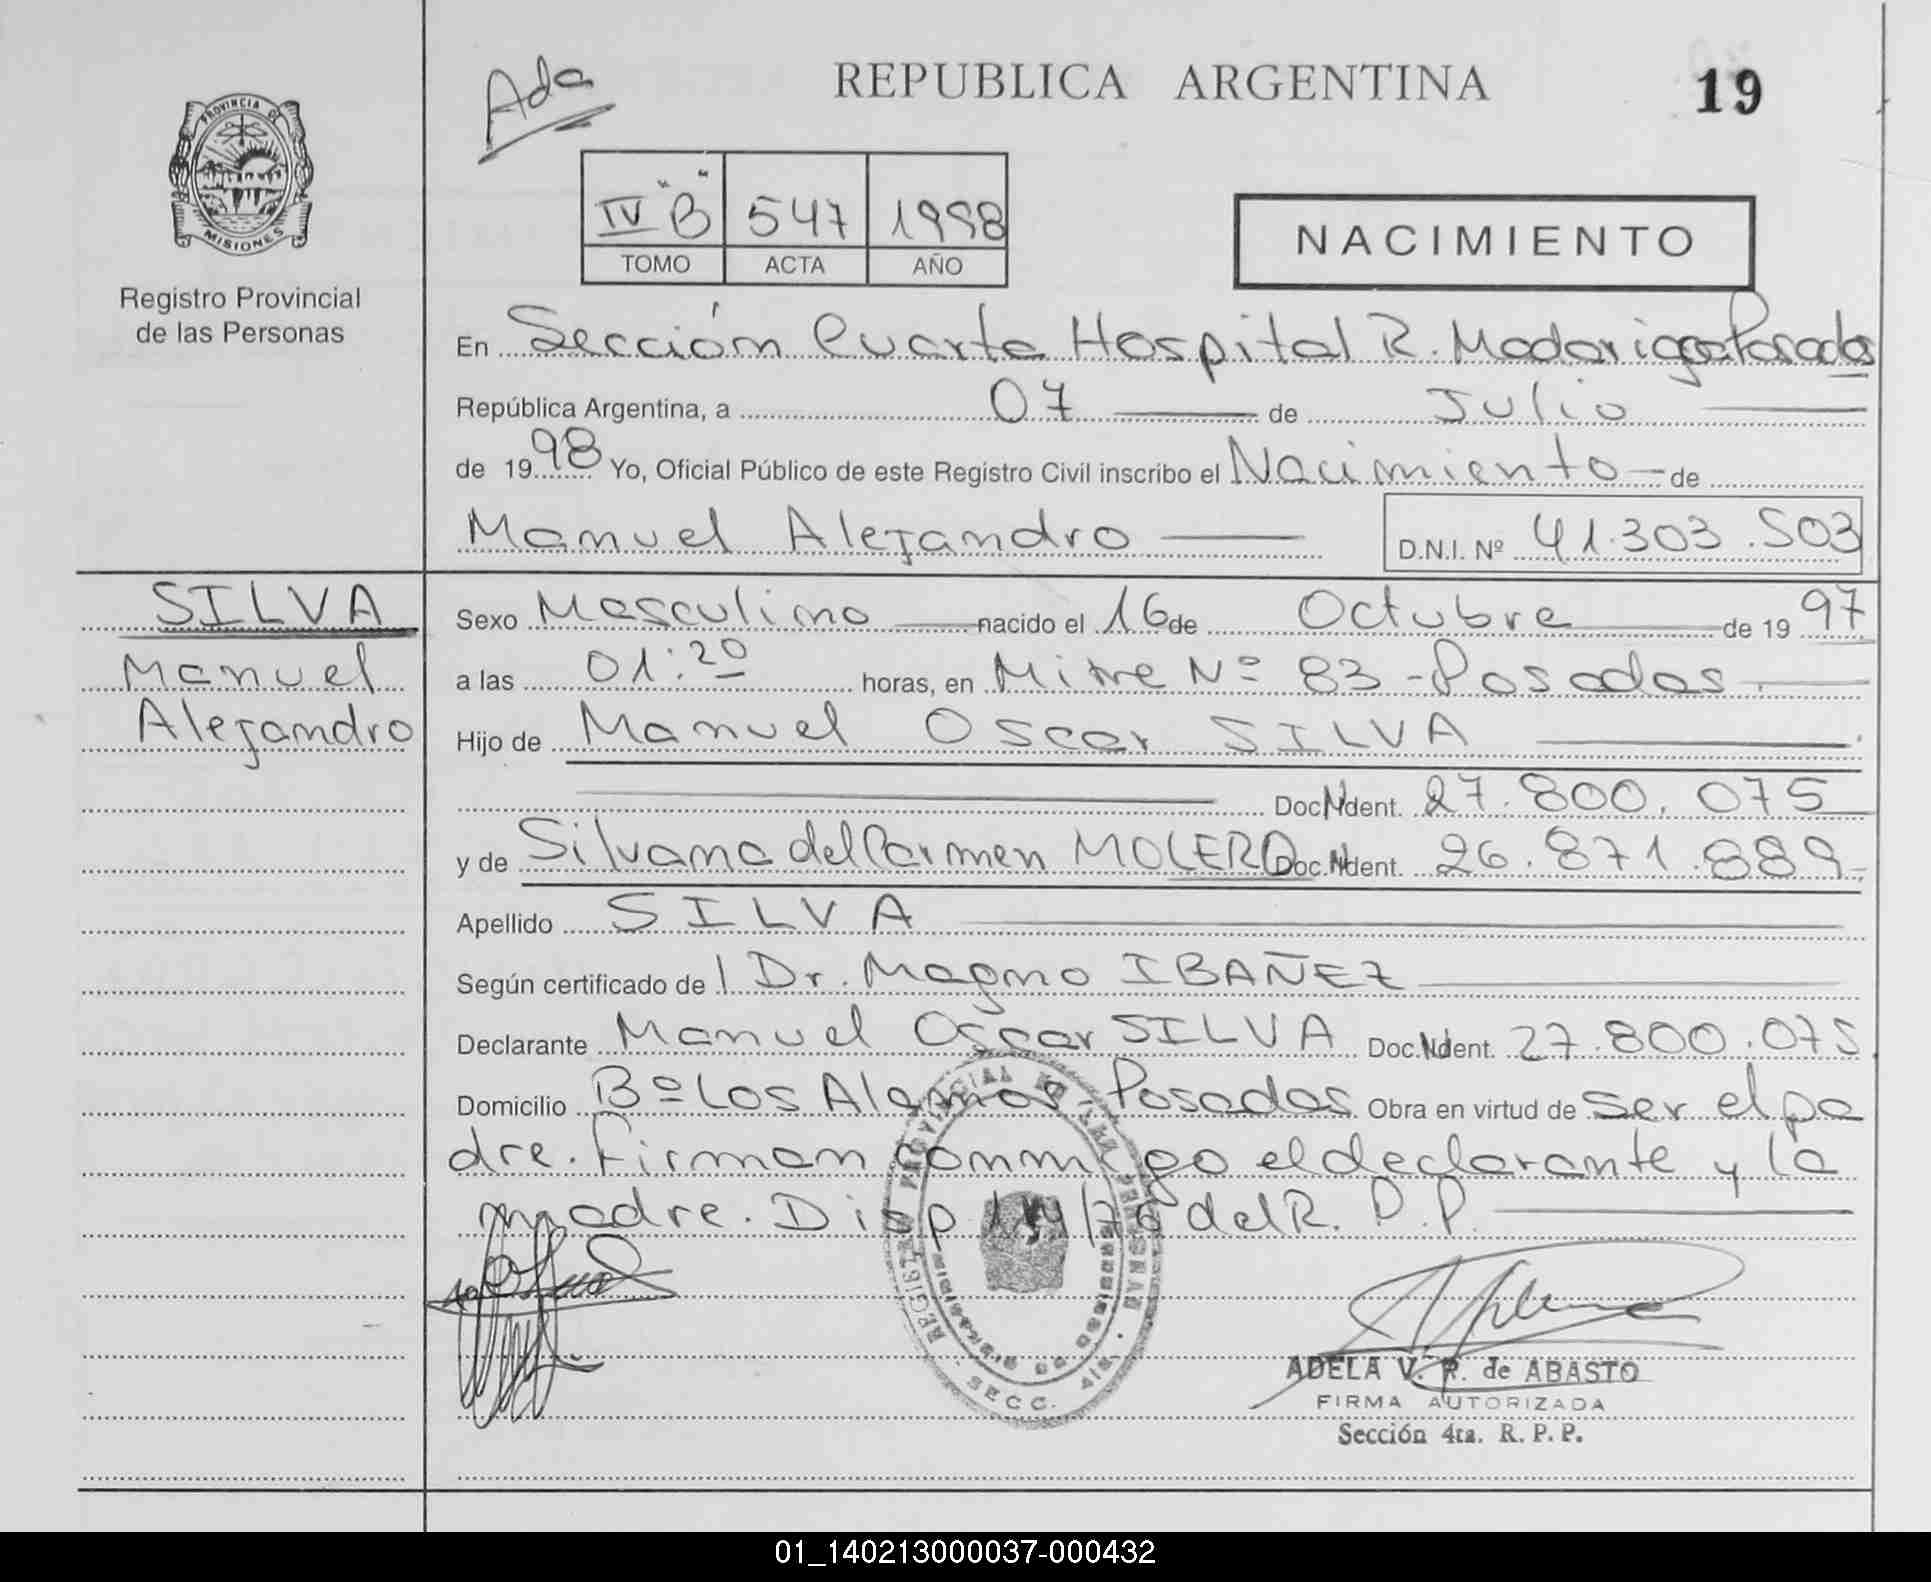 Ada
REPUBLICA ARGENTINA
19
PROVINCIA DE
MISIONES
Registro Provincial
de las Personas
IV "B" 547 1998
TOMO ACTA AÑO
NACIMIENTO
En Sección Cuarta Hospital R. Madariaga Posadas
República Argentina, a 07 de Julio
de 1998 Yo, Oficial Público de este Registro Civil inscribo el Nacimiento de
Manuel Alejandro
D.N.I. Nº 41.303.503
SILVA
Manuel
Alejandro
Sexo Masculino nacido el 16 de Octubre de 1997
a las 01:20 horas, en Mitre Nº 83 - Posadas
Hijo de Manuel Oscar SILVA
Doc. Ident. 27.800.075
y de Silvana del Carmen MOLERO Doc. Ident. 26.871.889
Apellido SILVA
Según certificado de l Dr. Magno IBAÑEZ
Declarante Manuel Oscar SILVA Doc. Ident. 27.800.075
Domicilio Bº Los Alamos, Posadas Obra en virtud de ser el pa
dre. Firman conmigo el declarante y la
madre. Disp /76 del R. P. P.
REGISTRO PROVINCIAL DE LAS PERSONAS
SECC. 4ta.
ADELA V. R. de ABASTO
FIRMA AUTORIZADA
Sección 4ta. R. P. P.
01_140213000037-000432